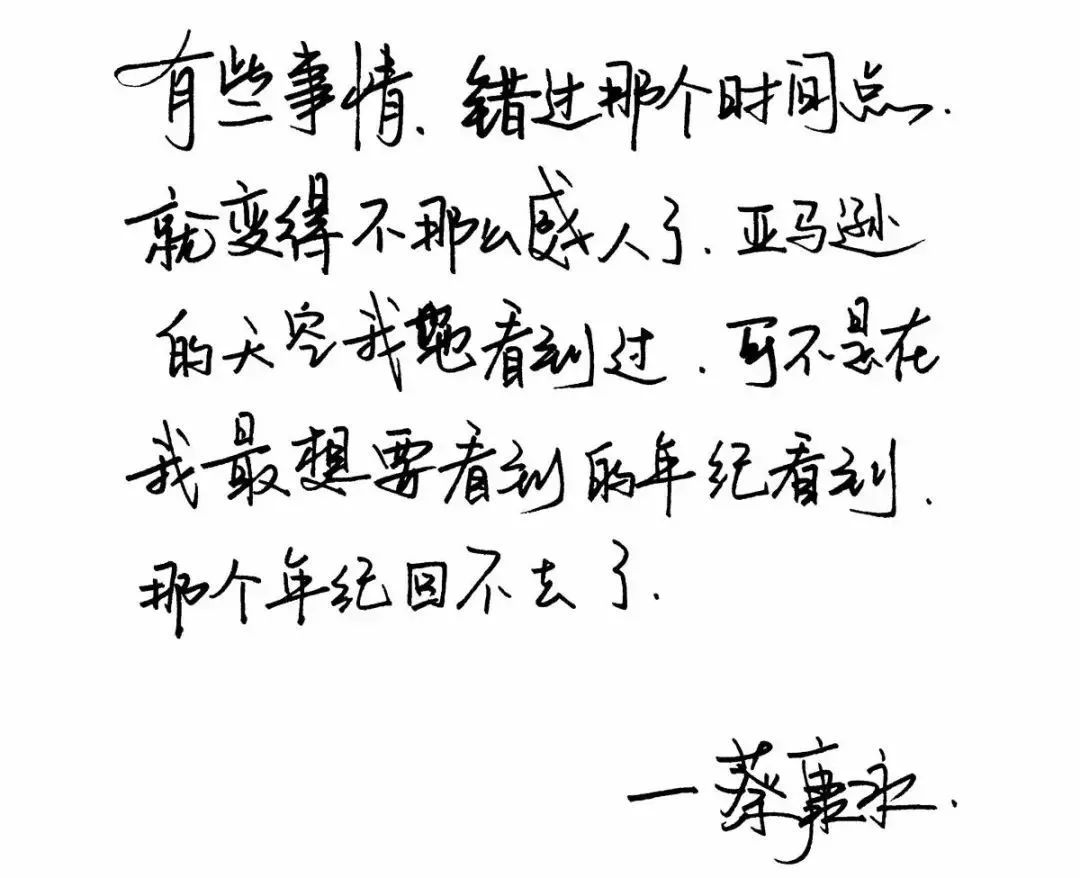 有些事情、错过那个时间点.
就变得不那么感人了.亚马逊
的天空我看到过.可不是在
我最想要看到的年纪看到.
那个年纪回不去了.
一蔡康永.